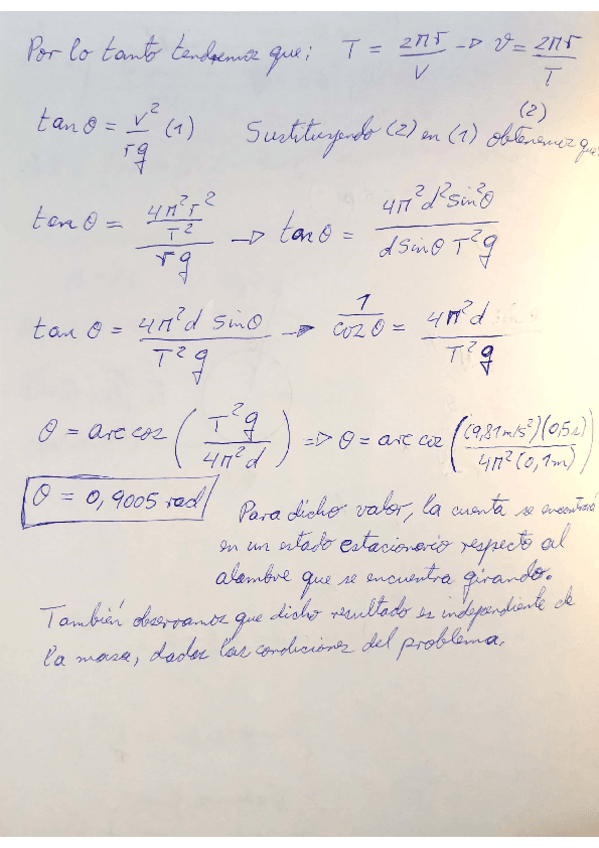 Por lo tanto tendremos que: T = 2πr/V → v = 2πr/T
(2)
tan θ = v²/rg (1) Sustituyendo (2) en (1) obtenemos que:
tan θ = (4π²r²/T²)/(rg) → tan θ = 4π²d²sin²θ/(d sin θ T²g)
tan θ = 4π²d sin θ/(T²g) → 1/cos θ = 4π²d/(T²g)
θ = arc cos (T²g/(4π²d)) ⇒ θ = arc cos ((9,81m/s²)(0,5s)/(4π²(0,1m)))
θ = 0,9005 rad
Para dicho valor, la cuenta se encontrará
en un estado estacionario respecto al
alambre que se encuentra girando.
También observamos que dicho resultado es independiente de
la masa, dadas las condiciones del problema.